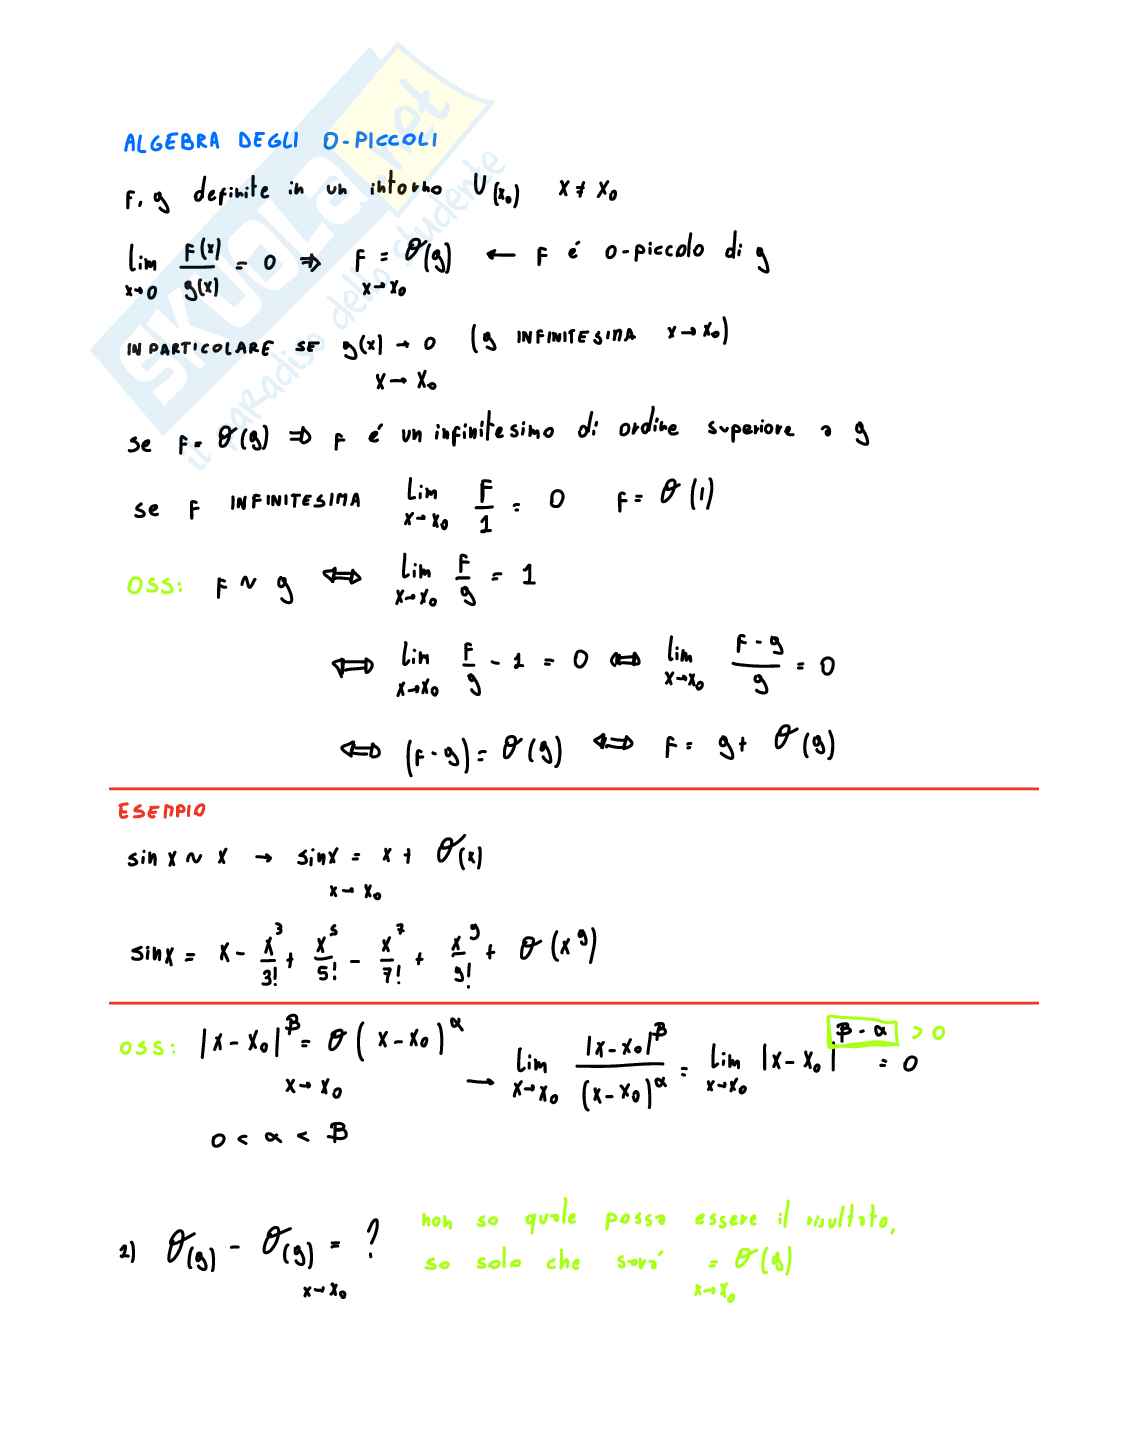 ALGEBRA DEGLI O-PICCOLI
F, g definite in un intorno U(x₀) x ≠ x₀
lim x→0 F(x)/g(x) = 0 ⇒ F = σ(g) x→x₀ ← F é o-piccolo di g
IN PARTICOLARE SE g(x) → 0 x→x₀ (g INFINITESIMA x→x₀)
se F = σ(g) ⇒ F é un infinitesimo di ordine superiore a g
se F INFINITESIMA lim x→x₀ F/1 = 0 F = σ(1)
OSS: F ~ g ⟺ lim x→x₀ F/g = 1
⟺ lim x→x₀ F/g - 1 = 0 ⟺ lim x→x₀ (F-g)/g = 0
⟺ (F-g) = σ(g) ⟺ F = g + σ(g)
ESEMPIO
sin x ~ x → sin x = x + σ(x) x→x₀
sin x = x - x³/3! + x⁵/5! - x⁷/7! + x⁹/9! + σ(x⁹)
OSS: |x-x₀|^β = σ(x-x₀)^α x→x₀ → lim x→x₀ |x-x₀|^β/(x-x₀)^α = lim x→x₀ |x-x₀|^(β-α) = 0 β-α > 0
0 < α < β
1) σ(g) - σ(g) = ? x→x₀
non so quale possa essere il risultato,
so solo che sará = σ(g) x→x₀
SKUOLA.net
il paradiso dello studente